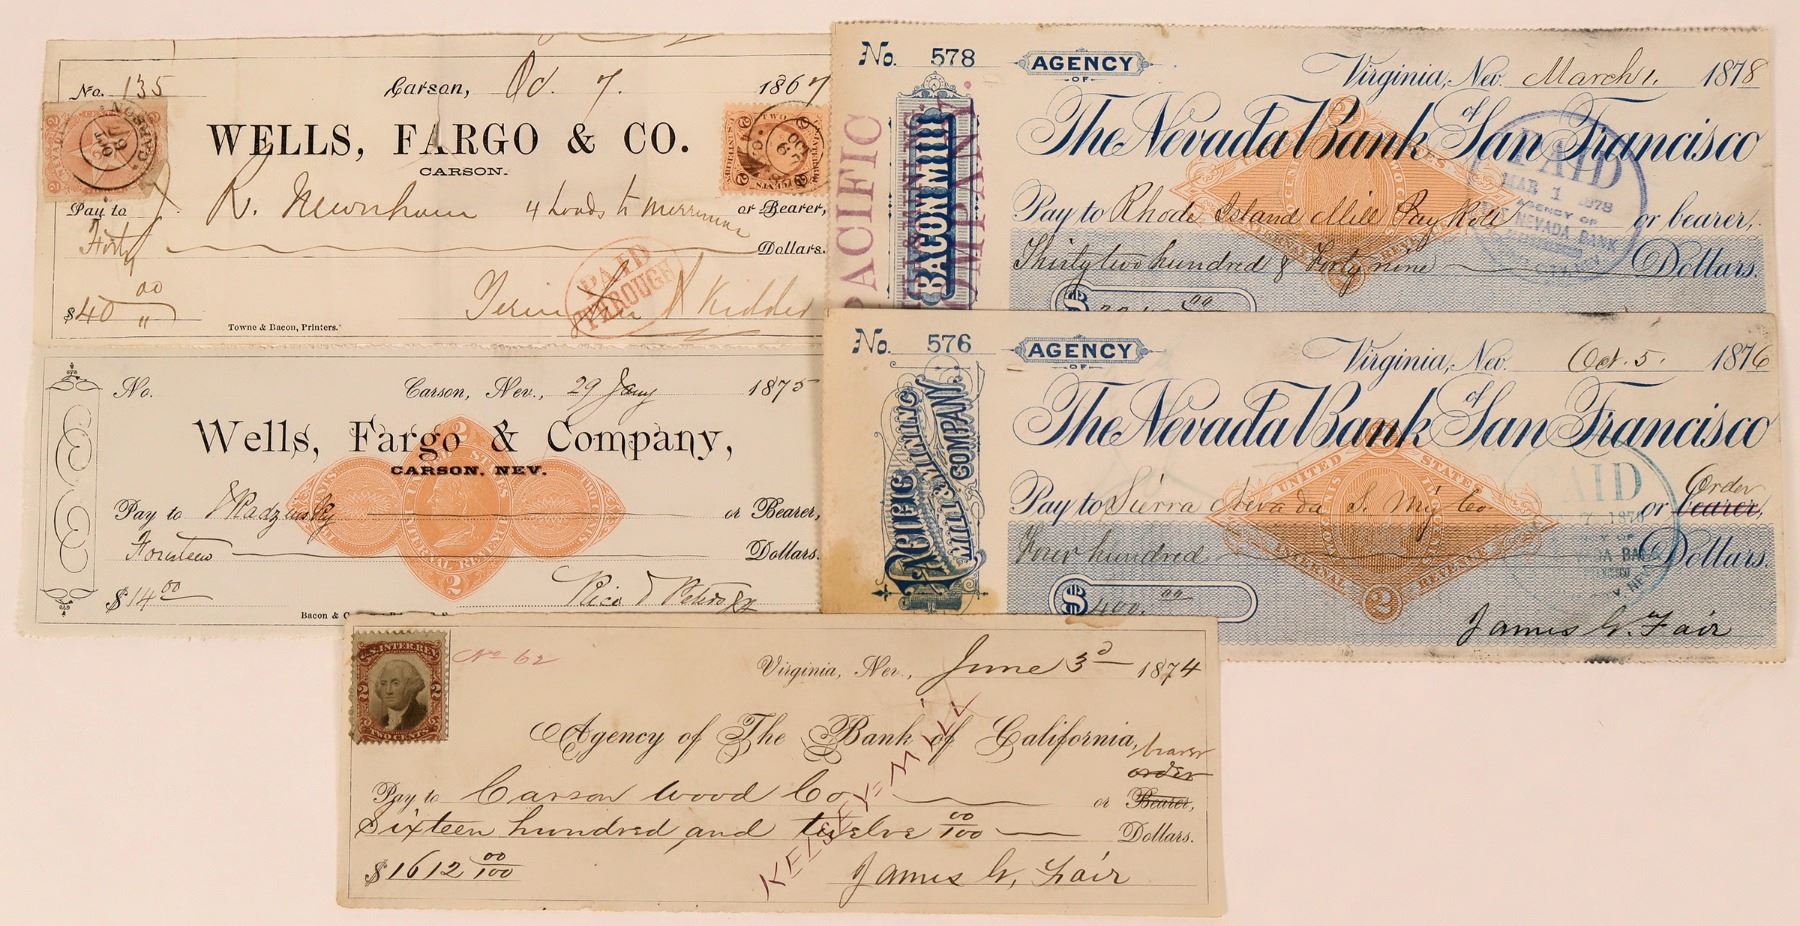 No. 135 Carson, Oct. 7. 1867
WELLS, FARGO & CO.
CARSON.
Pay to R. Mewnham 4 Loads to Merrimac or Bearer,
Forty Dollars.
$40 00
PAID
THROUGH
Towne & Bacon, Printers.
No. Carson, Nev., 29 Jany 1875
Wells, Fargo & Company,
CARSON, NEV.
UNITED STATES
INTERNAL REVENUE
2
Pay to or Bearer,
Fourteen Dollars.
$14 00
Bacon &
No. 578 AGENCY Virginia, Nev. March 1. 1878
OF
The Nevada Bank of San Francisco
PACIFIC
BACON MILL
PAID
MAR 1 1878
AGENCY OF
THE NEVADA BANK
Pay to Rhode Island Mill Pay Roll or bearer,
Thirty two hundred & forty nine Dollars.
$
No. 576 AGENCY Virginia, Nev. Oct. 5. 1876
OF
The Nevada Bank of San Francisco
PACIFIC MILL & MINING COMPANY.
PAID
UNITED STATES
INTERNAL REVENUE
2
Order
Pay to Sierra Nevada S. M'g Co or bearer,
Four hundred Dollars.
$ 400. 00
James G. Fair
U.S. INTER. REV.
TWO CENTS
No 62
Virginia, Nev., June 3d 1874
Agency of The Bank of California,
bearer
order
Pay to Carson Wood Co or Bearer,
Sixteen hundred and twelve 00/100 Dollars.
$1612 00/100
KELSEY-MILL
James G. Fair